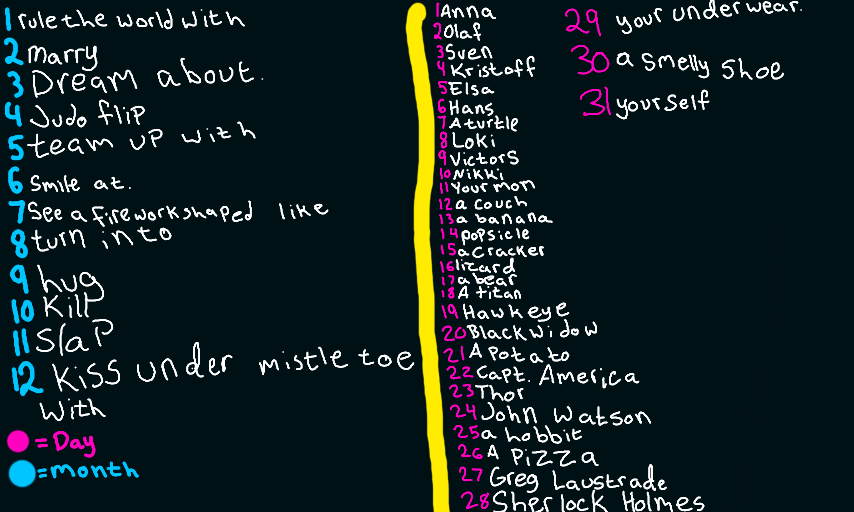 1 rule the world with
2 marry
3 Dream about.
4 Judo flip
5 team up with
6 Smile at.
7 See a firework shaped like
8 turn into
9 hug
10 Kill
11 Slap
12 Kiss under mistle toe
with
= Day
= month
1 Anna
2 Olaf
3 Sven
4 Kristoff
5 Elsa
6 Hans
7 A turtle
8 Loki
9 Victors
10 Nikki
11 Your mon
12 a couch
13 a banana
14 popsicle
15 a cracker
16 lizard
17 a bear
18 A titan
19 Hawkeye
20 Black widow
21 A Potato
22 Capt. America
23 Thor
24 John Watson
25 a hobbit
26 A PIZZA
27 Greg Laustrade
28 Sherlock Holmes
29 your underwear.
30 a smelly shoe
31 yourself